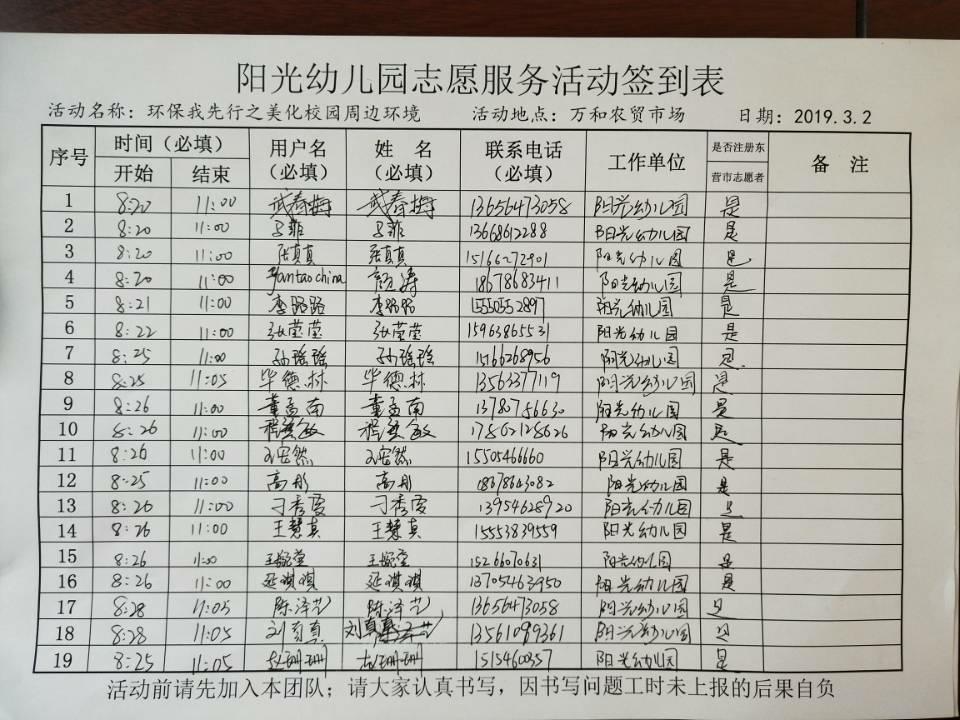 阳光幼儿园志愿服务活动签到表
活动名称：环保我先行之美化校园周边环境 活动地点：万和农贸市场 日期：2019.3.2
序号 时间（必填） 用户名（必填） 姓名（必填） 联系电话（必填） 工作单位 是否注册东营市志愿者 备注
开始 结束
1 8:20 11:00 武春梅 武春梅 13656473058 阳光幼儿园 是
2 8:20 11:00 13668612288 阳光幼儿园 是
3 8:20 11:00 张真真 张真真 15166272901 阳光幼儿园 是
4 8:20 11:00 Yantaochina 颜涛 18678683411 阳光幼儿园 是
5 8:21 11:00 李路路 李路路 15550552897 阳光幼儿园 是
6 8:22 11:00 张莹莹 张莹莹 15963865531 阳光幼儿园 是
7 8:25 11:00 孙瑶瑶 孙瑶瑶 15166268956 阳光幼儿园 是
8 8:25 11:05 毕德林 毕德林 13563377119 阳光幼儿园 是
9 8:26 11:00 董孟南 董孟南 13780756630 阳光幼儿园 是
10 8:26 11:00 17862128626 阳光幼儿园 是
11 8:26 11:00 15505466660 阳光幼儿园 是
12 8:25 11:00 高彤 高彤 18678643082 阳光幼儿园 是
13 8:26 11:00 刁秀霞 刁秀霞 13954628920 阳光幼儿园 是
14 8:26 11:00 王慧真 王慧真 15553839559 阳光幼儿园 是
15 8:26 11:00 15266070631 阳光幼儿园 是
16 8:26 11:00 延琪琪 延琪琪 13705463950 阳光幼儿园 是
17 8:28 11:05 陈泽艺 陈泽艺 13656473058 阳光幼儿园 是
18 8:28 11:05 刘真真 13561099361 阳光幼儿园 是
19 8:25 11:05 赵珊珊 赵珊珊 1515460357 阳光幼儿园 是
活动前请先加入本团队；请大家认真书写，因书写问题工时未上报的后果自负